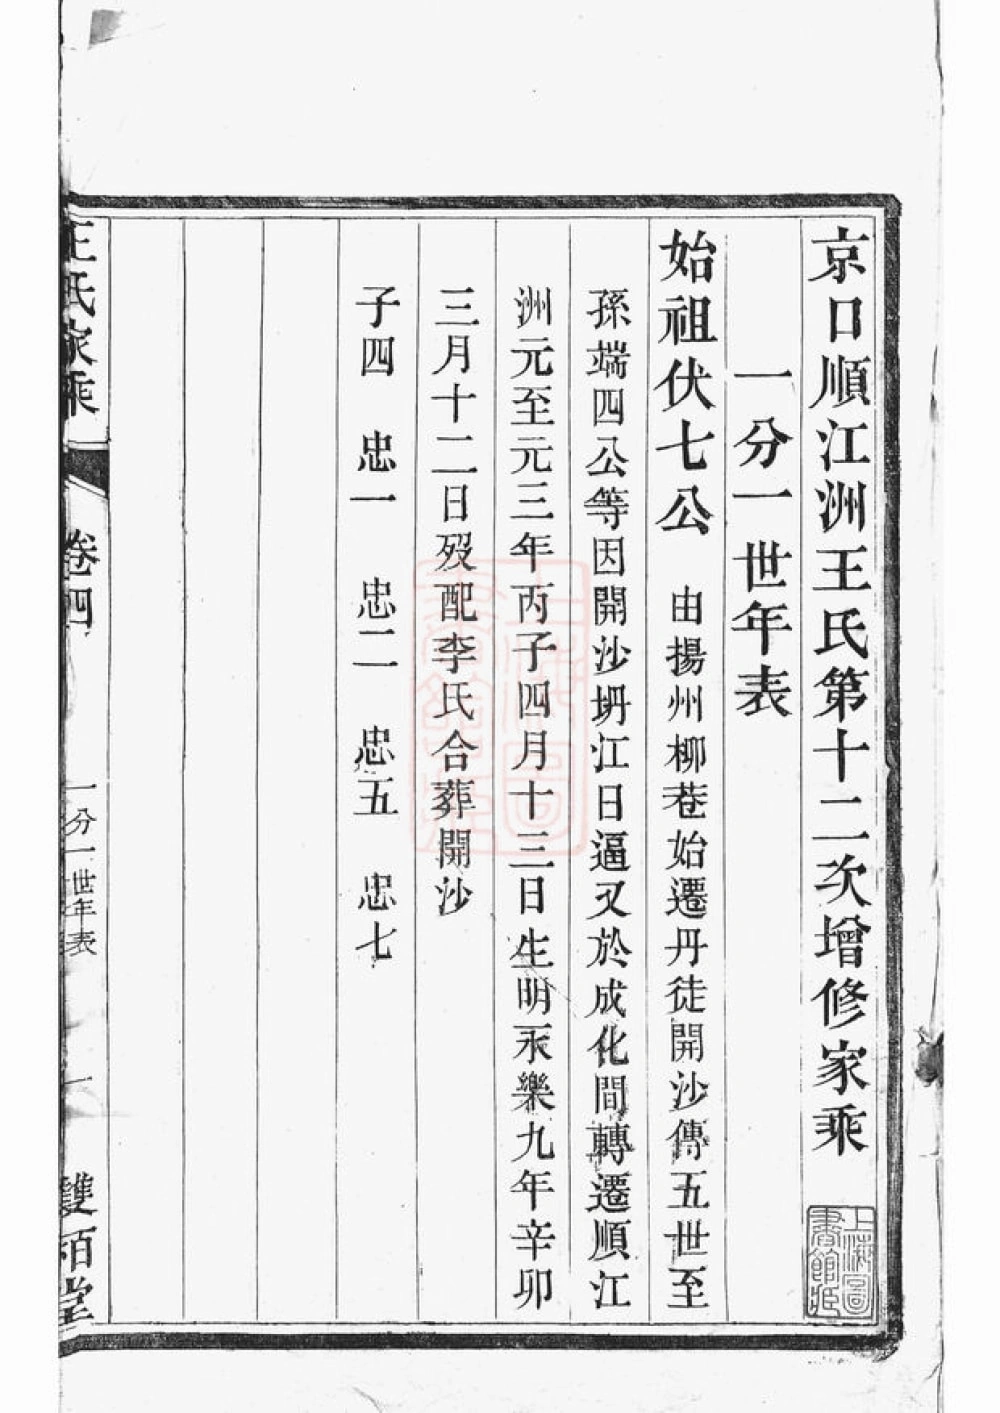 京口順江洲王氏第十二次增修家乘
一分一世年表
始祖伏七公 由揚州柳巷始遷丹徒開沙傳五世至
孫端四公等因開沙坍江日逼又於成化間轉遷順江
洲元至元三年丙子四月十三日生明永樂九年辛卯
三月十二日歿配李氏合葬開沙
子四 忠一 忠二 忠五 忠七
王氏家乘 卷四 一分一世年表 一 雙栢堂
上海圖書館藏
上海圖書館藏